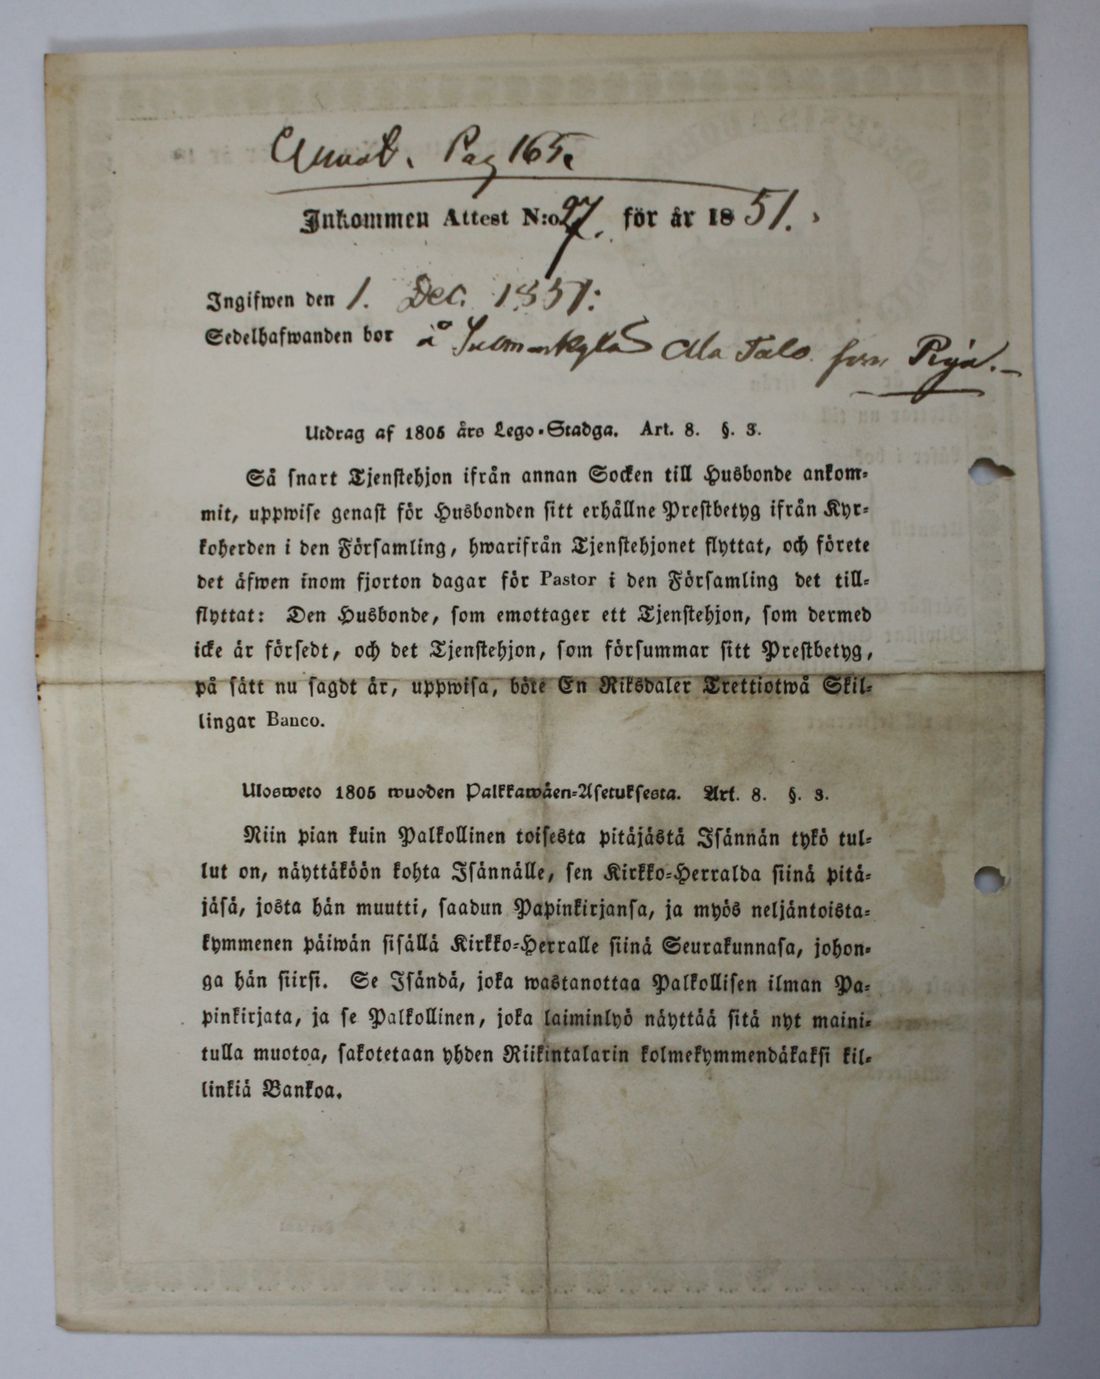 Annot. Pag 165.
Inkommen Attest N:o 97. för år 1851.
Ingifwen den 1. Dec. 1851.
Sedelhafwanden bor å Ala Talo som Piga.
Utdrag af 1805 års Lego-Stadga. Art. 8. §. 3.
Så snart Tjenstehjon ifrån annan Socken till Husbonde ankom-
mit, uppwise genast för Husbonden sitt erhållne Prestbetyg ifrån Kyr-
koherden i den Församling, hwarifrån Tjenstehjonet flyttat, och förete
det äfwen inom fjorton dagar för Pastor i den Församling det till-
flyttat: Den Husbonde, som emottager ett Tjenstehjon, som dermed
icke är försedt, och det Tjenstehjon, som försummar sitt Prestbetyg,
på sätt nu sagdt är, uppwisa, böte En Riksdaler Trettiotwå Skil-
lingar Banco.
Ulosweto 1805 wuoden Palkkawäen-Asetuksesta. Art. 8. §. 3.
Niin pian kuin Palkollinen toisesta pitäjästä Isännän tykö tul-
lut on, näyttäköön kohta Isännälle, sen Kirkko-Herralda siinä pitä-
jäsä, josta hän muutti, saadun Papinkirjansa, ja myös neljäntoista-
kymmenen päiwän sisällä Kirkko-Herralle siinä Seurakunnasa, johon-
ga hän siirsi. Se Isändä, joka wastanottaa Palkollisen ilman Pa-
pinkirjata, ja se Palkollinen, joka laiminlyö näyttää sitä nyt maini-
tulla muotoa, sakotetaan yhden Riikintalarin kolmekymmendäkaksi kil-
linkiä Bankoa.